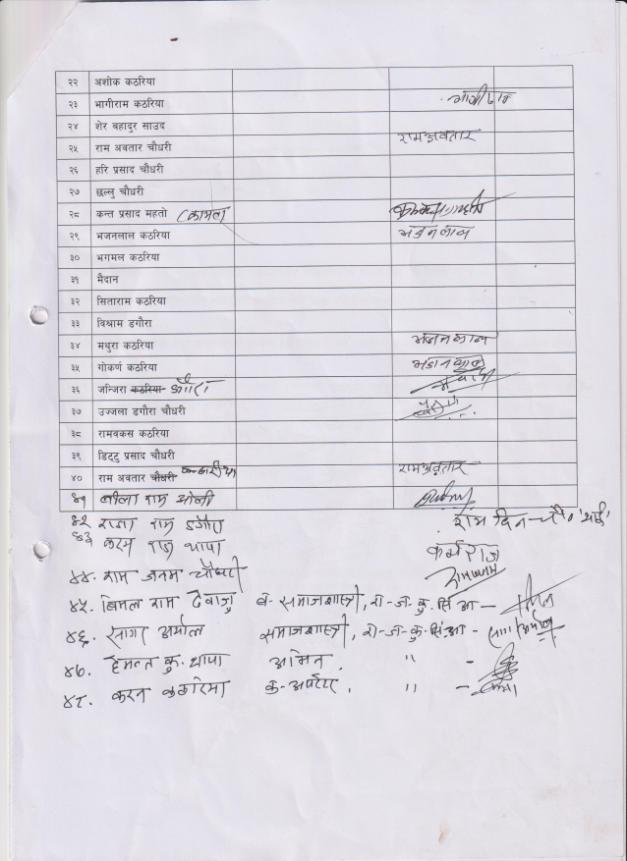 २२ अशोक कठरिया
२३ भागीराम कठरिया भागीराम
२४ शेर बहादुर साउद
२५ राम अवतार चौधरी रामअवतार
२६ हरि प्रसाद चौधरी
२७ छल्लु चौधरी
२८ कन्त प्रसाद महतो (कामता)
२९ भजनलाल कठरिया भजनलाल
३० भगमल कठरिया
३१ मैदान
३२ सिताराम कठरिया
३३ विश्राम डगौरा
३४ मथुरा कठरिया भजनलाल
३५ गोकर्ण कठरिया भजनलाल
३६ जन्जिरा कठरिया
३७ उज्जला डगौरा चौधरी
३८ रामवकस कठरिया
३९ डिट्टु प्रसाद चौधरी
४० राम अवतार चौधरी कठरीया रामअवतार
४१ लीला राम ओली
४२ राजा राम डगौरा राम दिन चौ०
४३ करम राज थापा कर्मराज
४४. राम जनम चौधरी
४५. बिमल राम देवाजु व. समाजशास्त्री, रा.ज.कु.सिं.आ –
४६. सागर अर्याल समाजशास्त्री, रा.ज.कु.सिं.आ –
४७. हेमन्त कु. थापा अमिन, " –
४८. करन कठरिया क. अपरेटर, " –